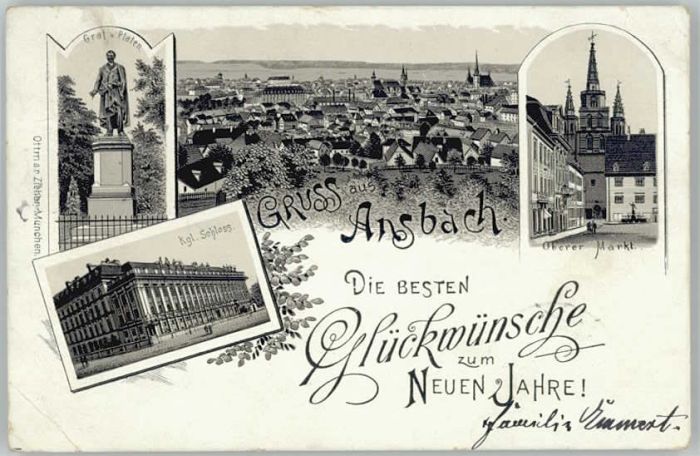 Graf v. Platen
Ottmar Zieher München.
Kgl. Schloss.
Oberer Markt.
GRUSS aus
Ansbach.
DIE BESTEN
Glückwünsche
zum
NEUEN JAHRE!
Familie Emmert.